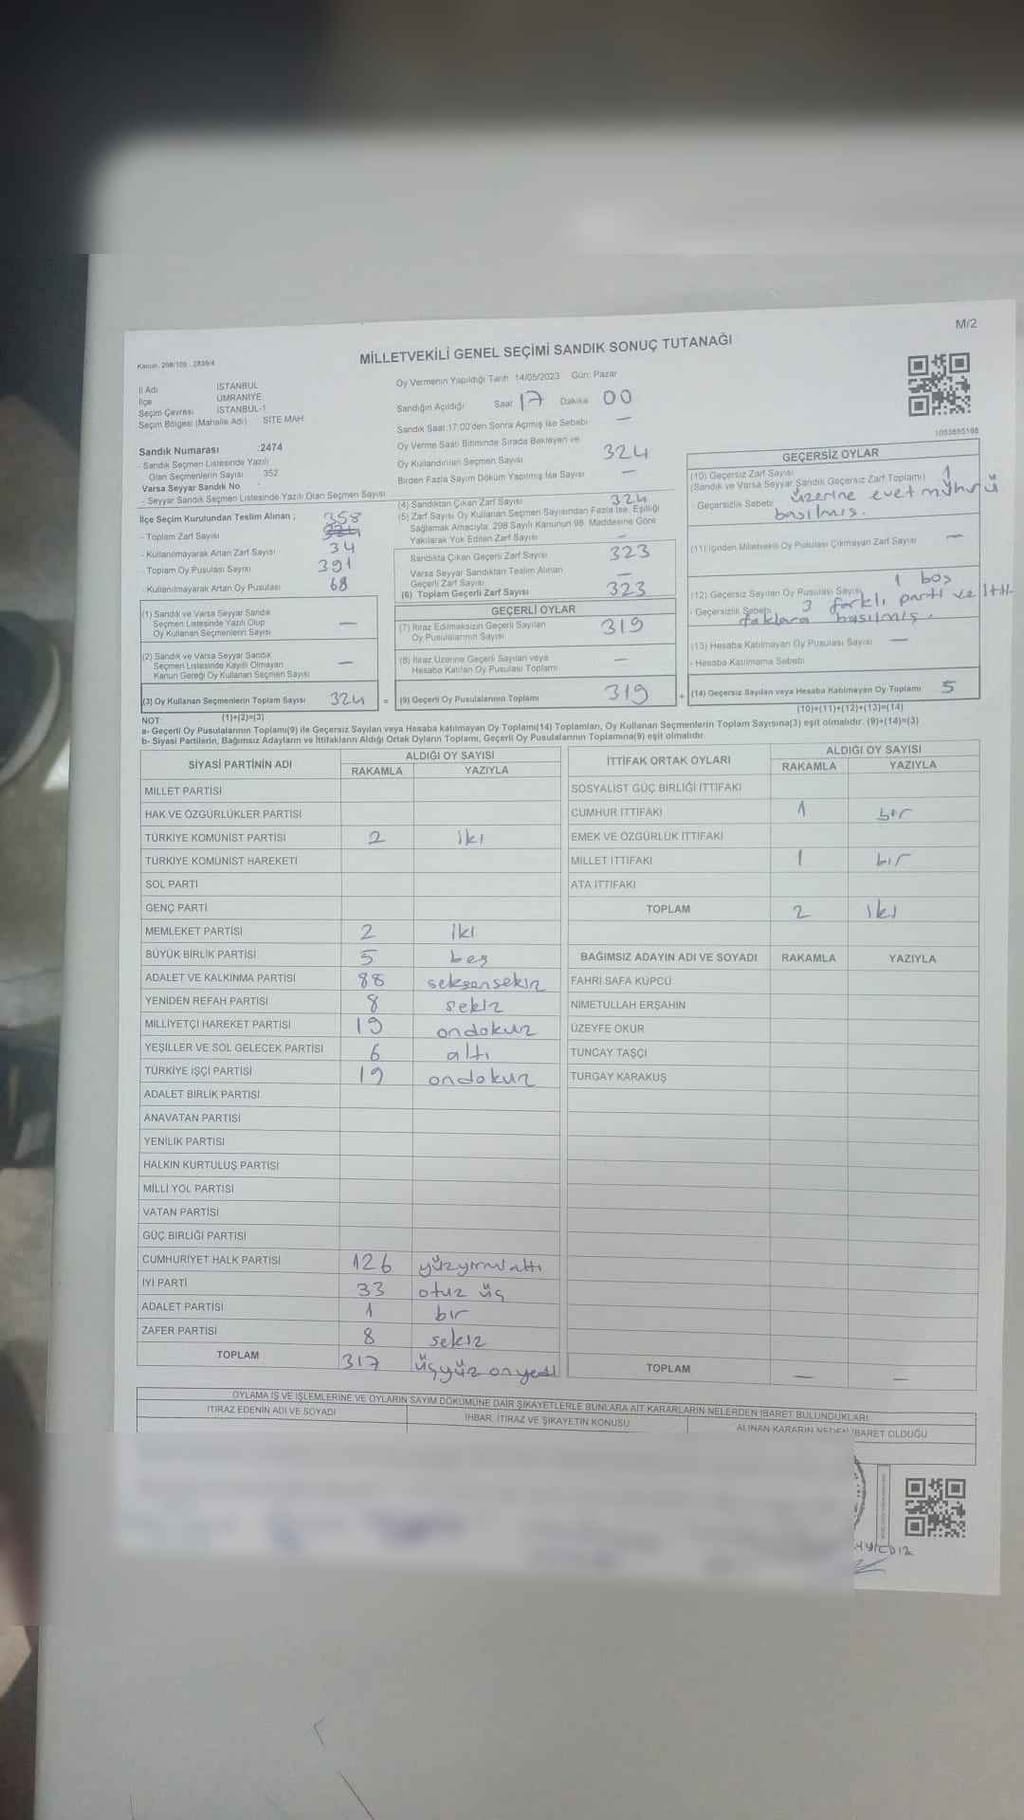 M/2
Kanun: 298/105 - 2839/4
MİLLETVEKİLİ GENEL SEÇİMİ SANDIK SONUÇ TUTANAĞI
İl Adı İSTANBUL
İlçe ÜMRANİYE
Seçim Çevresi İSTANBUL-1
Seçim Bölgesi (Mahalle Adı) SİTE MAH
Oy Vermenin Yapıldığı Tarih 14/05/2023 Gün: Pazar
Sandığın Açıldığı Saat 17 Dakika 00
Sandık Saat 17:00'den Sonra Açmış İse Sebebi —
Sandık Numarası :2474
- Sandık Seçmen Listesinde Yazılı
Olan Seçmenlerin Sayısı 352
Varsa Seyyar Sandık No
- Seyyar Sandık Seçmen Listesinde Yazılı Olan Seçmen Sayısı
Oy Verme Saati Bitiminde Sırada Bekleyen ve
Oy Kullandırılan Seçmen Sayısı 324
Birden Fazla Sayım Döküm Yapılmış İse Sayısı —
İlçe Seçim Kurulundan Teslim Alınan ; 358
- Toplam Zarf Sayısı
- Kullanılmayarak Artan Zarf Sayısı 34
- Toplam Oy Pusulası Sayısı 391
- Kullanılmayarak Artan Oy Pusulası 68
(1) Sandık ve Varsa Seyyar Sandık
Seçmen Listesinde Yazılı Olup
Oy Kullanan Seçmenlerin Sayısı —
(2) Sandık ve Varsa Seyyar Sandık
Seçmen Listesinde Kayıtlı Olmayan
Kanun Gereği Oy Kullanan Seçmen Sayısı —
(3) Oy Kullanan Seçmenlerin Toplam Sayısı 324
(1)+(2)=(3)
(4) Sandıktan Çıkan Zarf Sayısı 324
(5) Zarf Sayısı Oy Kullanan Seçmen Sayısından Fazla İse, Eşitliği
Sağlamak Amacıyla: 298 Sayılı Kanunun 98. Maddesine Göre
Yakılarak Yok Edilen Zarf Sayısı —
Sandıkta Çıkan Geçerli Zarf Sayısı 323
Varsa Seyyar Sandıktan Teslim Alınan
Geçerli Zarf Sayısı —
(6) Toplam Geçerli Zarf Sayısı 323
GEÇERLİ OYLAR
(7) İtiraz Edilmeksizin Geçerli Sayılan
Oy Pusulalarının Sayısı 319
(8) İtiraz Üzerine Geçerli Sayılan veya
Hesaba Katılan Oy Pusulası Toplamı —
= (9) Geçerli Oy Pusulalarının Toplamı 319
1053855168
GEÇERSİZ OYLAR
(10) Geçersiz Zarf Sayısı 1
(Sandık ve Varsa Seyyar Sandık Geçersiz Zarf Toplamı)
- Geçersizlik Sebebi üzerine evet mührü
basılmış.
(11) İçinden Milletvekili Oy Pusulası Çıkmayan Zarf Sayısı —
1 boş
(12) Geçersiz Sayılan Oy Pusulası Sayısı
- Geçersizlik Sebebi 3 farklı parti ve itti
faklara basılmış.
(13) Hesaba Katılmayan Oy Pusulası Sayısı —
- Hesaba Katılmama Sebebi
+ (14) Geçersiz Sayılan veya Hesaba Katılmayan Oy Toplamı 5
(10)+(11)+(12)+(13)=(14)
NOT:
a- Geçerli Oy Pusulalarının Toplamı(9) ile Geçersiz Sayılan veya Hesaba Katılmayan Oy Toplamı(14) Toplamları, Oy Kullanan Seçmenlerin Toplam Sayısına(3) eşit olmalıdır. (9)+(14)=(3)
b- Siyasi Partilerin, Bağımsız Adayların ve İttifakların Aldığı Ortak Oyların Toplamı, Geçerli Oy Pusulalarının Toplamına(9) eşit olmalıdır.
SİYASİ PARTİNİN ADI ALDIĞI OY SAYISI
RAKAMLA YAZIYLA
MİLLET PARTİSİ
HAK VE ÖZGÜRLÜKLER PARTİSİ
TÜRKİYE KOMÜNİST PARTİSİ 2 iki
TÜRKİYE KOMÜNİST HAREKETİ
SOL PARTİ
GENÇ PARTİ
MEMLEKET PARTİSİ 2 iki
BÜYÜK BİRLİK PARTİSİ 5 beş
ADALET VE KALKINMA PARTİSİ 88 seksensekiz
YENİDEN REFAH PARTİSİ 8 sekiz
MİLLİYETÇİ HAREKET PARTİSİ 19 ondokuz
YEŞİLLER VE SOL GELECEK PARTİSİ 6 altı
TÜRKİYE İŞÇİ PARTİSİ 19 ondokuz
ADALET BİRLİK PARTİSİ
ANAVATAN PARTİSİ
YENİLİK PARTİSİ
HALKIN KURTULUŞ PARTİSİ
MİLLİ YOL PARTİSİ
VATAN PARTİSİ
GÜÇ BİRLİĞİ PARTİSİ
CUMHURİYET HALK PARTİSİ 126 yüzyirmialtı
İYİ PARTİ 33 otuz üç
ADALET PARTİSİ 1 bir
ZAFER PARTİSİ 8 sekiz
TOPLAM 317 üçyüz onyedi
İTTİFAK ORTAK OYLARI ALDIĞI OY SAYISI
RAKAMLA YAZIYLA
SOSYALİST GÜÇ BİRLİĞİ İTTİFAKI
CUMHUR İTTİFAKI 1 bir
EMEK VE ÖZGÜRLÜK İTTİFAKI
MİLLET İTTİFAKI 1 bir
ATA İTTİFAKI
TOPLAM 2 iki
BAĞIMSIZ ADAYIN ADI VE SOYADI RAKAMLA YAZIYLA
FAHRİ SAFA KÜPCÜ
NİMETULLAH ERŞAHİN
ÜZEYFE OKUR
TUNCAY TAŞÇI
TURGAY KARAKUŞ
TOPLAM — —
OYLAMA İŞ VE İŞLEMLERİNE VE OYLARIN SAYIM DÖKÜMÜNE DAİR ŞİKAYETLERLE BUNLARA AİT KARARLARIN NELERDEN İBARET BULUNDUKLARI
İTİRAZ EDENİN ADI VE SOYADI İHBAR, İTİRAZ VE ŞİKAYETİN KONUSU ALINAN KARARIN NEDEN İBARET OLDUĞU